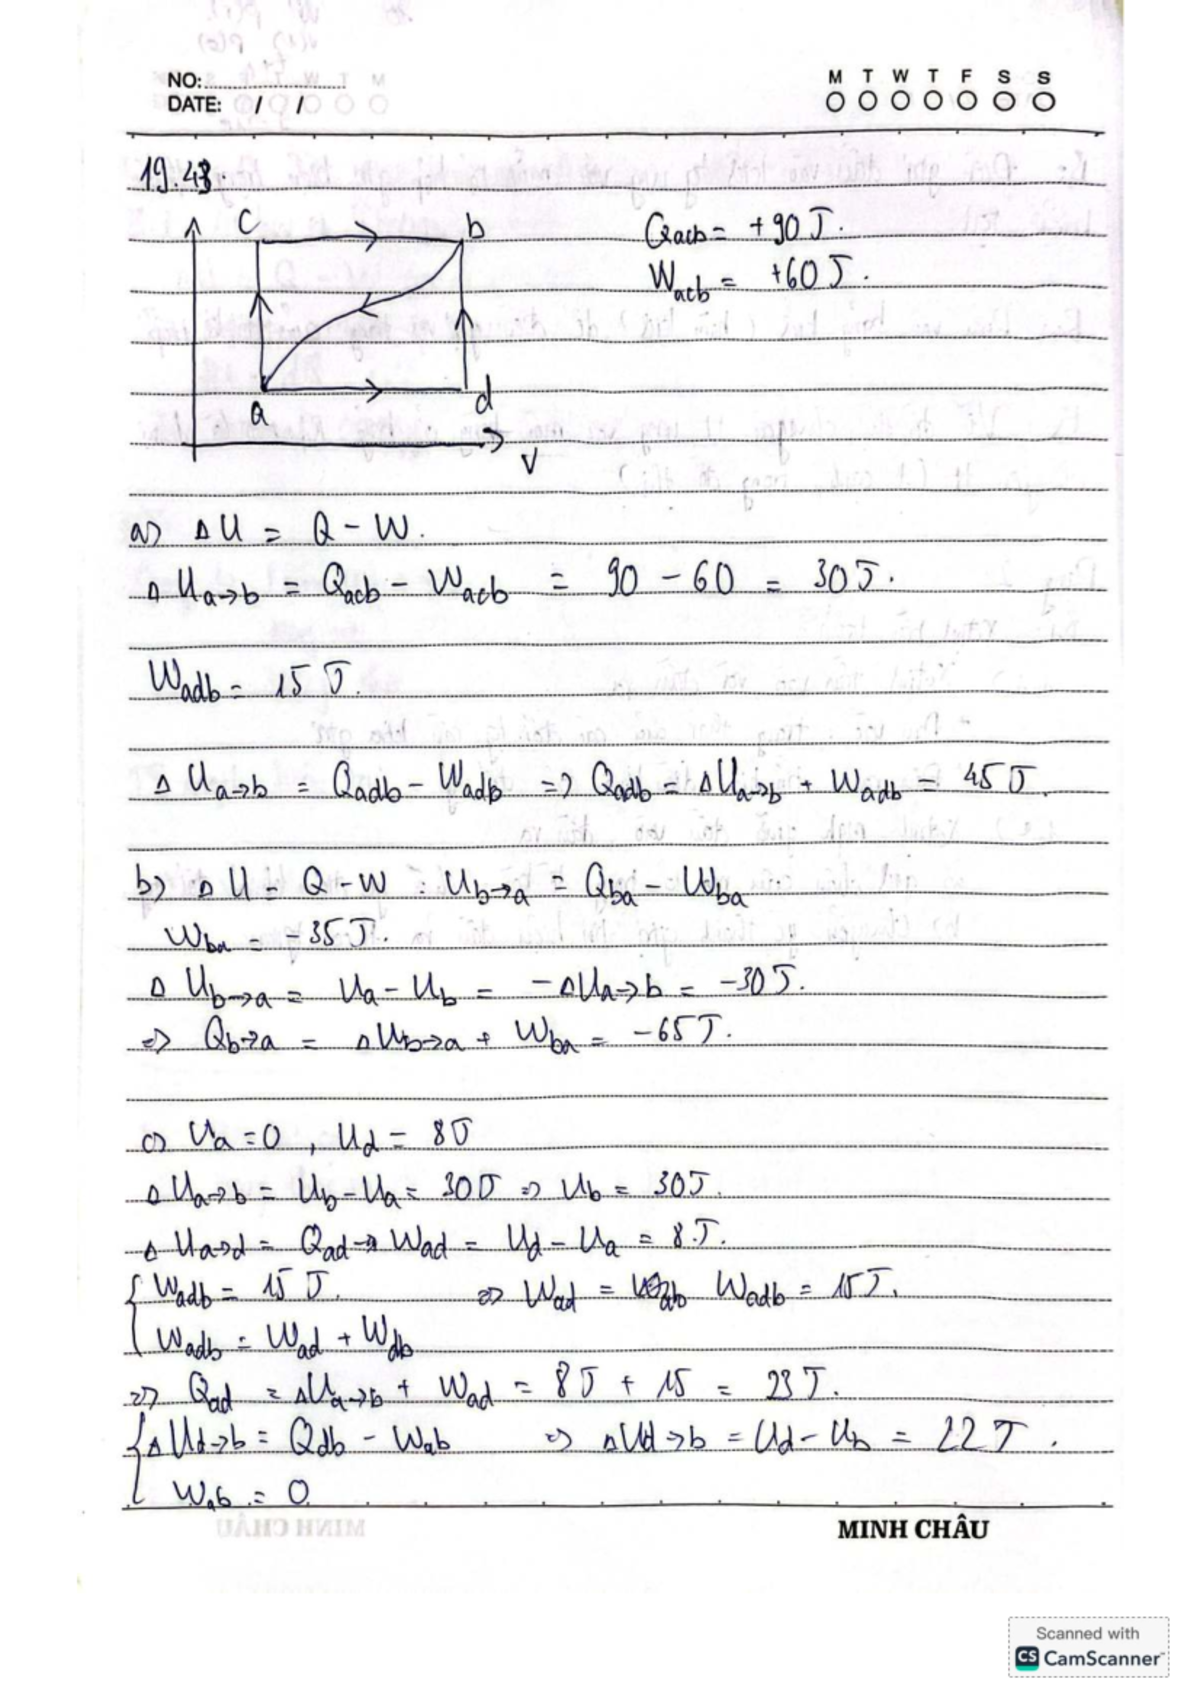 NO:
DATE: / /
M T W T F S S
19.43.
c b
a d
V
Qacb = +90 J.
Wacb = +60 J.
a) ΔU = Q - W.
ΔUa→b = Qacb - Wacb = 90 - 60 = 30 J.
Wadb = 15 J.
ΔUa→b = Qadb - Wadb => Qadb = ΔUa→b + Wadb = 45 J.
b) ΔU = Q - W : Ub→a = Qba - Wba
Wba = -35 J.
ΔUb→a = Ua - Ub = -ΔUa→b = -30 J.
=> Qb→a = ΔUb→a + Wba = -65 J.
c) Ua = 0, Ud = 8 J
ΔUa→b = Ub - Ua = 30 J => Ub = 30 J.
ΔUa→d = Qad - Wad = Ud - Ua = 8 J.
{ Wadb = 15 J. => Wad = Wadb = 15 J.
Wadb = Wad + Wdb
=> Qad = ΔUa→b + Wad = 8 J + 15 = 23 J.
{ ΔUd→b = Qdb - Wab => ΔUd→b = Ud - Ub = 22 J.
Wab = 0
MINH CHÂU
Scanned with
CS CamScanner